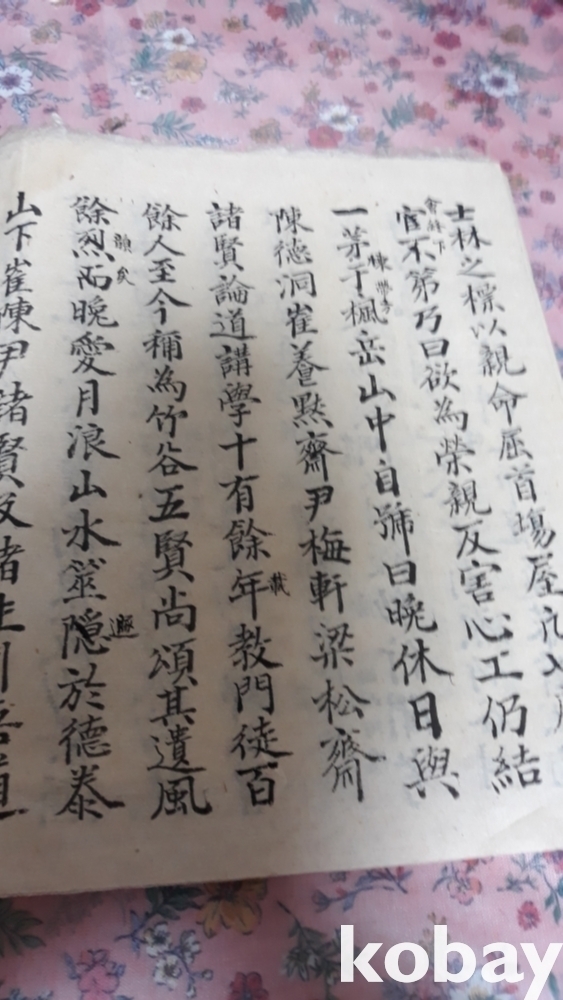 士林之標以親命屈首場屋
官不第乃曰欲為榮親反害心工仍結
一茅于楓岳山中自號曰晚休日與
陳德洞崔養黙齋尹梅軒梁松齋
諸賢論道講學十有餘年教門徒百
載
餘人至今稱為竹谷五賢尚頌其遺風
餘烈而晚愛月浪山水筮隱於德泰
韻矣
遯
山下崔陳尹諸賢及諸生
kobay